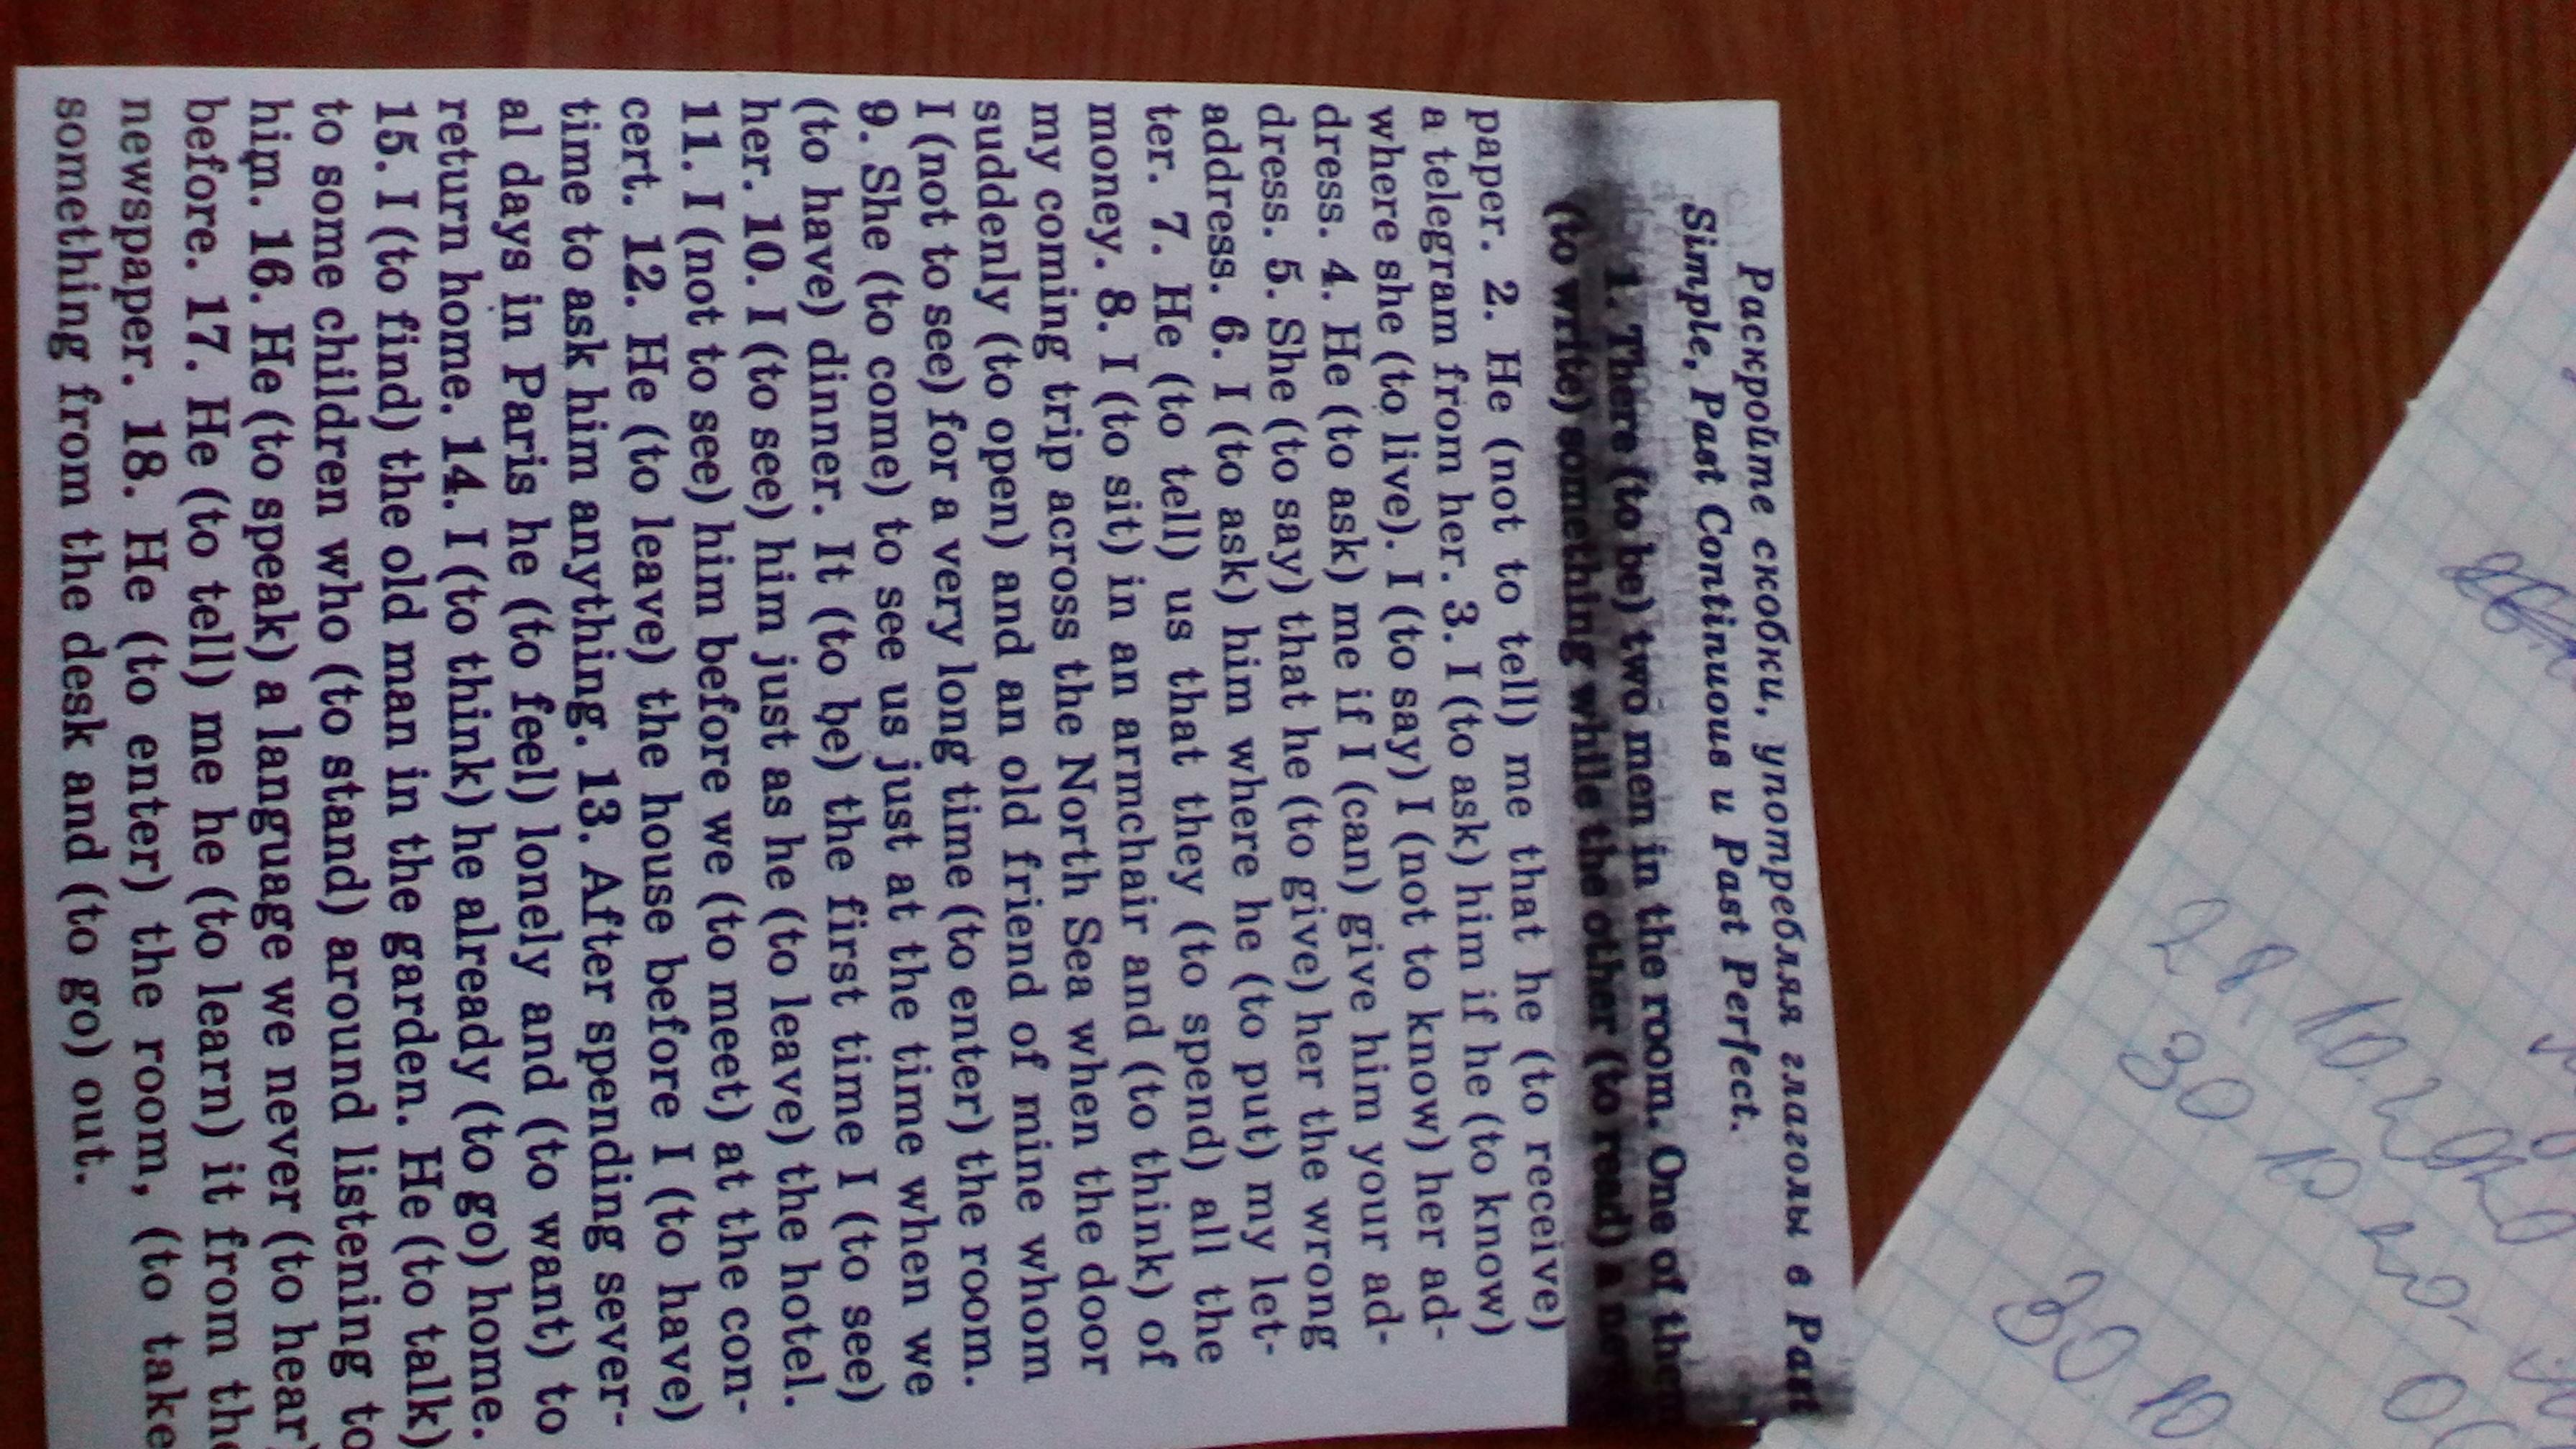 Раскройте скобки, употребляя глаголы в Past
Simple, Past Continuous и Past Perfect.
1. There (to be) two men in the room. One of them
(to write) something while the other (to read) a
paper. 2. He (not to tell) me that he (to receive)
a telegram from her. 3. I (to ask) him if he (to know)
where she (to live). I (to say) I (not to know) her ad-
dress. 4. He (to ask) me if I (can) give him your ad-
dress. 5. She (to say) that he (to give) her the wrong
address. 6. I (to ask) him where he (to put) my let-
ter. 7. He (to tell) us that they (to spend) all the
money. 8. I (to sit) in an armchair and (to think) of
my coming trip across the North Sea when the door
suddenly (to open) and an old friend of mine whom
I (not to see) for a very long time (to enter) the room.
9. She (to come) to see us just at the time when we
(to have) dinner. It (to be) the first time I (to see)
her. 10. I (to see) him just as he (to leave) the hotel.
11. I (not to see) him before we (to meet) at the con-
cert. 12. He (to leave) the house before I (to have)
time to ask him anything. 13. After spending sever-
al days in Paris he (to feel) lonely and (to want) to
return home. 14. I (to think) he already (to go) home.
15. I (to find) the old man in the garden. He (to talk)
to some children who (to stand) around listening to
him. 16. He (to speak) a language we never (to hear)
before. 17. He (to tell) me he (to learn) it from the
newspaper. 18. He (to enter) the room, (to take
something from the desk and (to go) out.
28.10.20
30 10
30 10